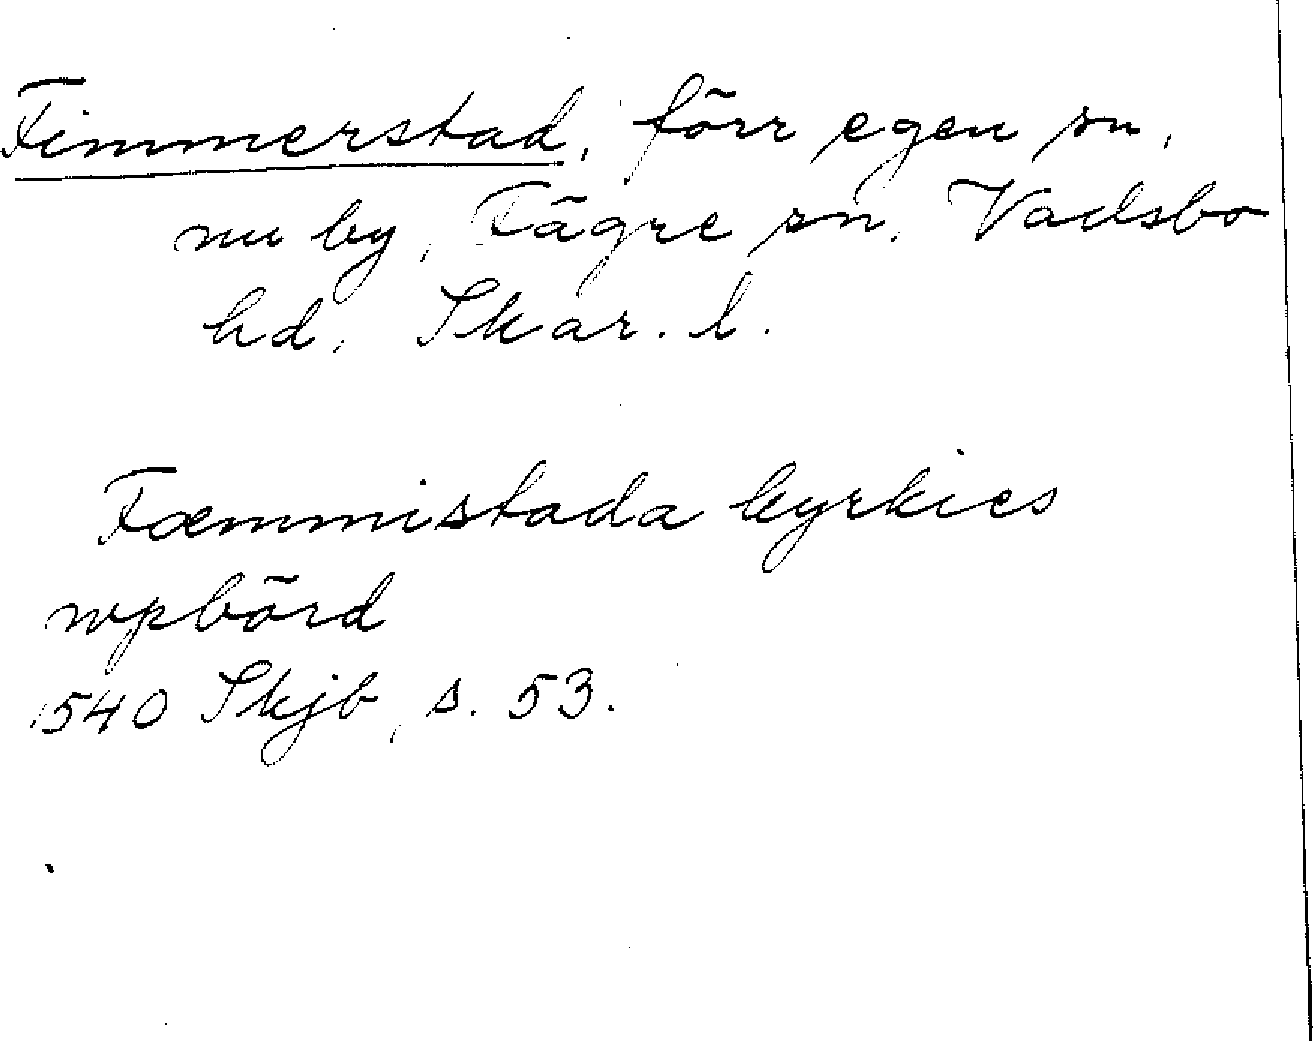 Fimmerstad, förr egen sn,
nu by, Fägre sn, Vadsbo
hd, Skar. l.
Fæmmistada kyrkies
wpbörd
1540 Skjb, s. 53.